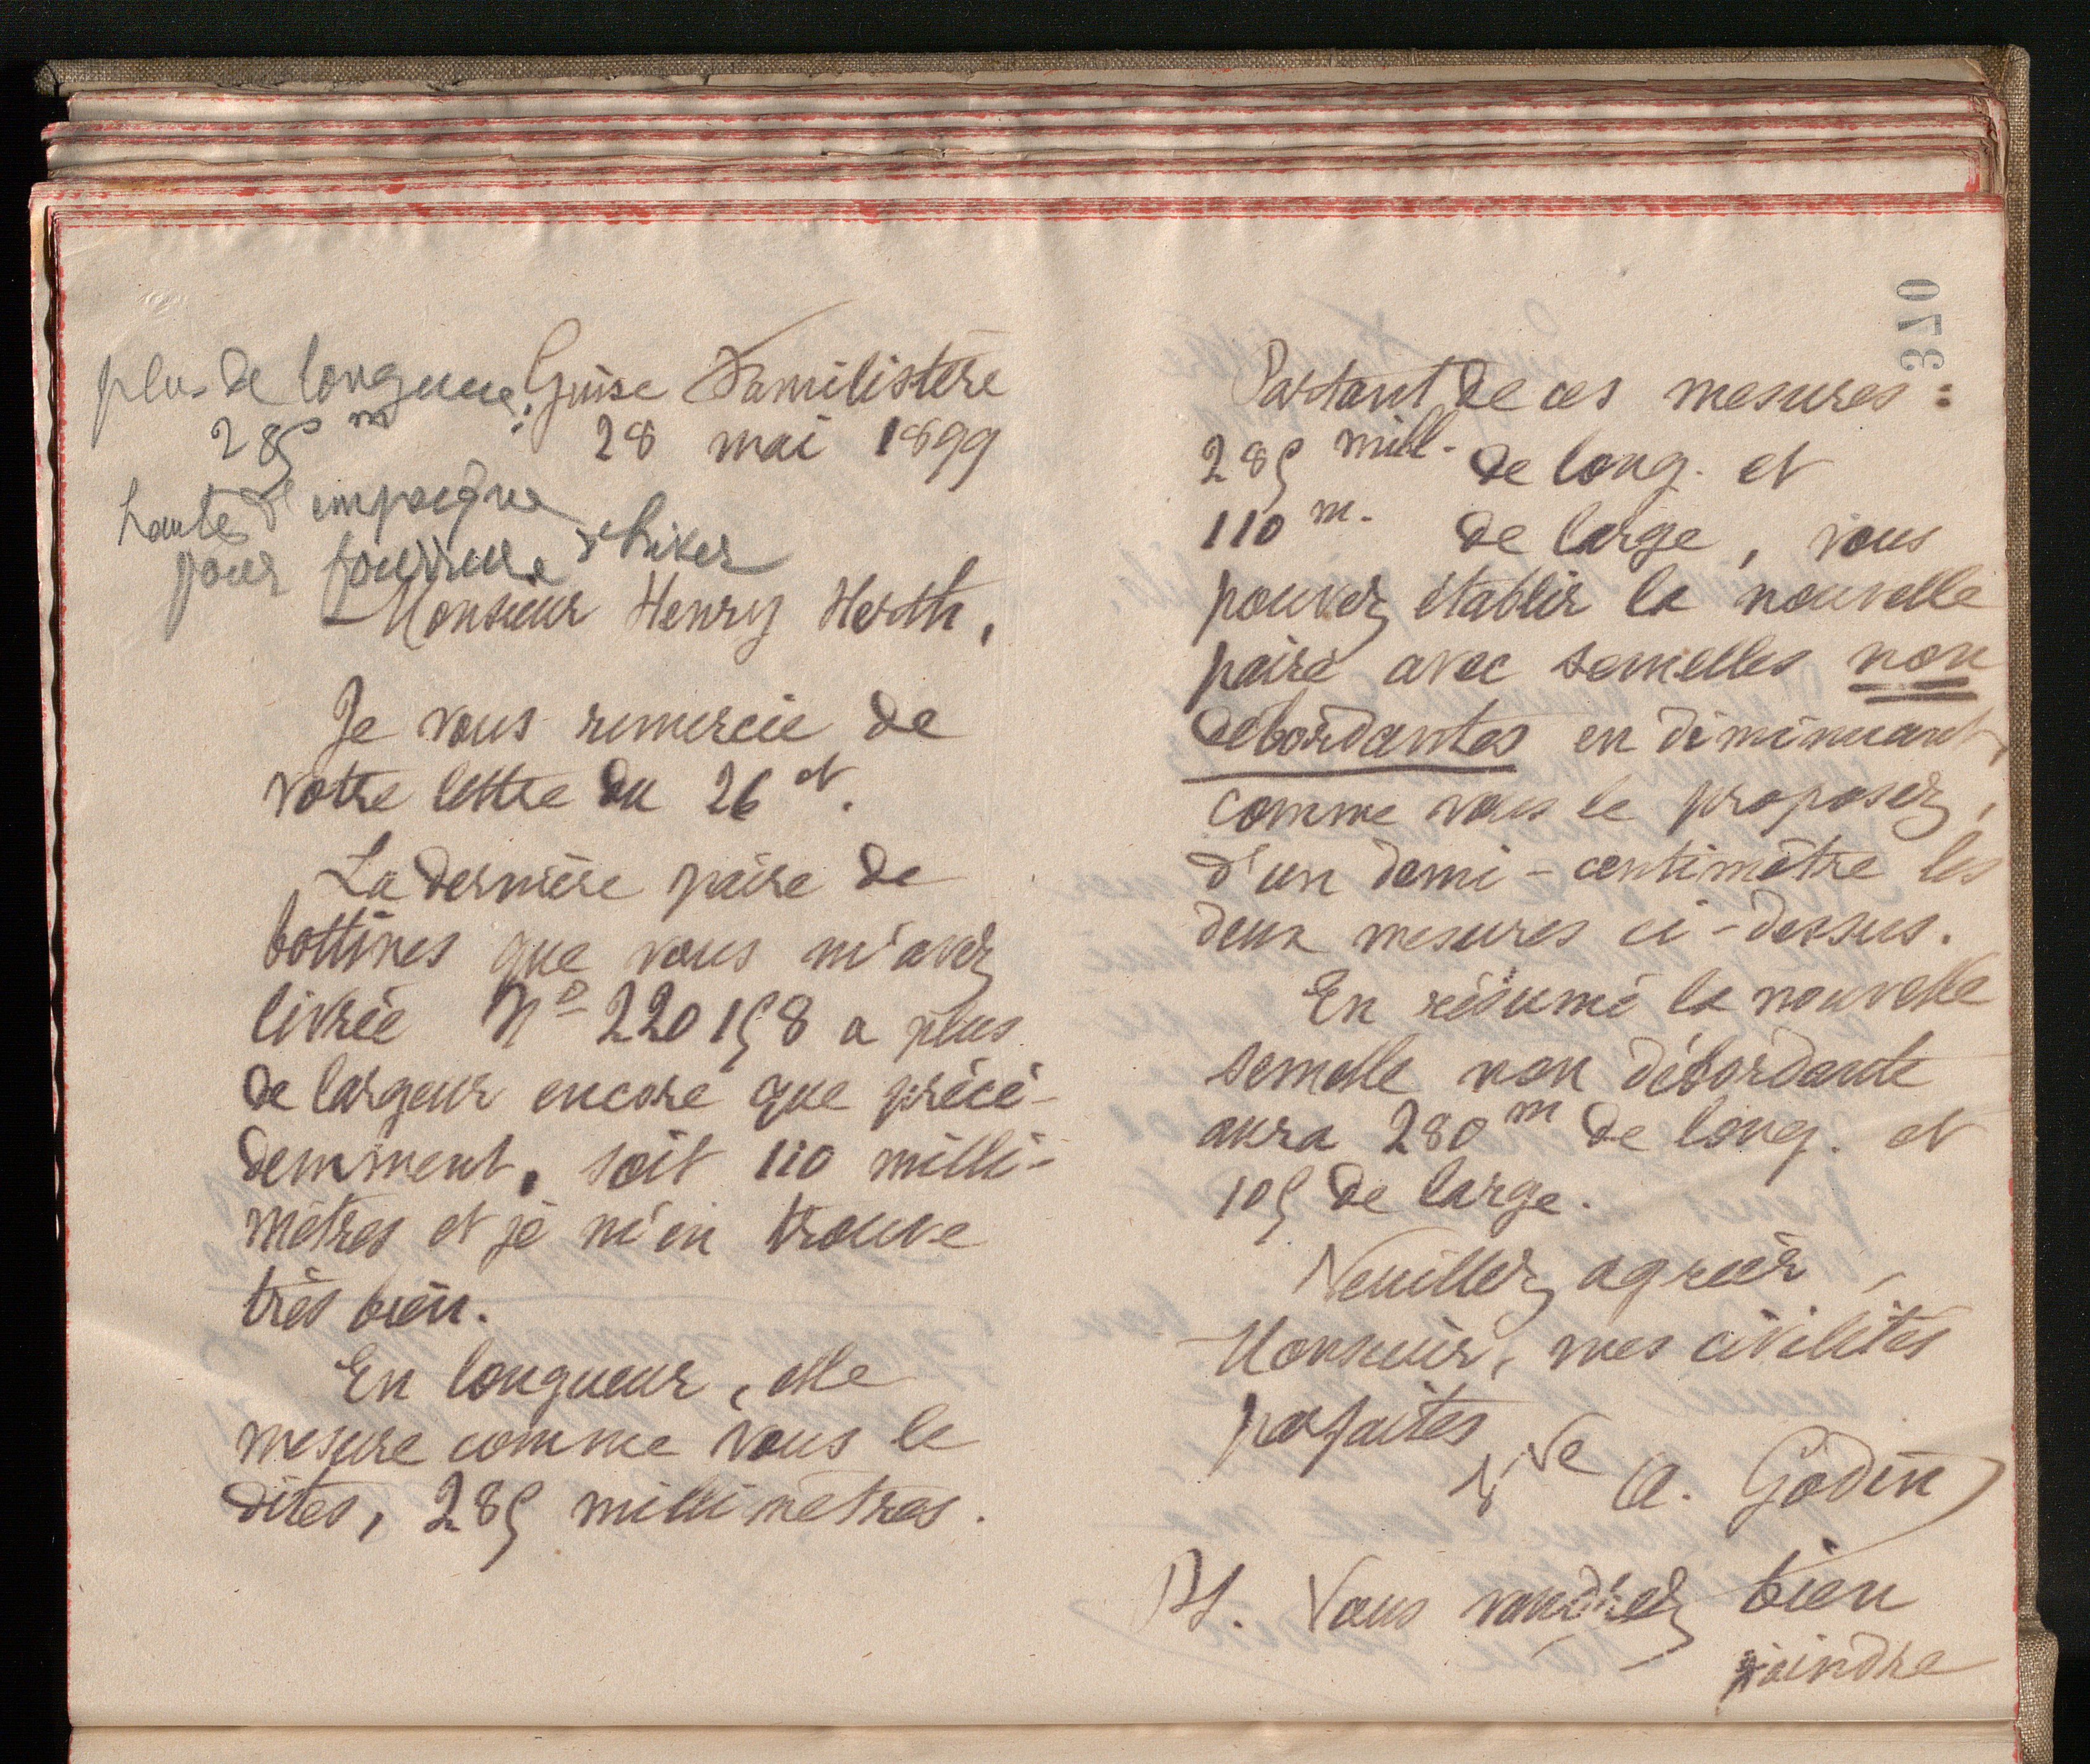 plus de longueur :
285 m
hautes d'empeigne
pour fourrure d'hiver
Guise Familistère
28 mai 1899
Monsieur Henry Herth,
Je vous remercie de
votre lettre du 26 ct.
La dernière paire de
bottines que vous m'avez
livrée No 220158 a plus
de largeur encore que précé-
demment, soit 110 milli-
mètres et je m'en trouve
très bien.
En longueur, elle
mesure comme vous le
dites, 285 millimètres.
370
Partant de ces mesures :
285 mill. de long. et
110 m. de large, vous
pouvez établir la nouvelle
paire avec semelles non
débordantes en diminuant,
comme vous le proposez,
d'un demi-centimètre les
deux mesures ci-dessus.
En résumé la nouvelle
semelle non débordante
aura 280 m de long. et
105 de large.
Veuillez agréer,
Monsieur, mes civilités
parfaites
Ve A. Godin
PS. Vous voudrez bien
joindre